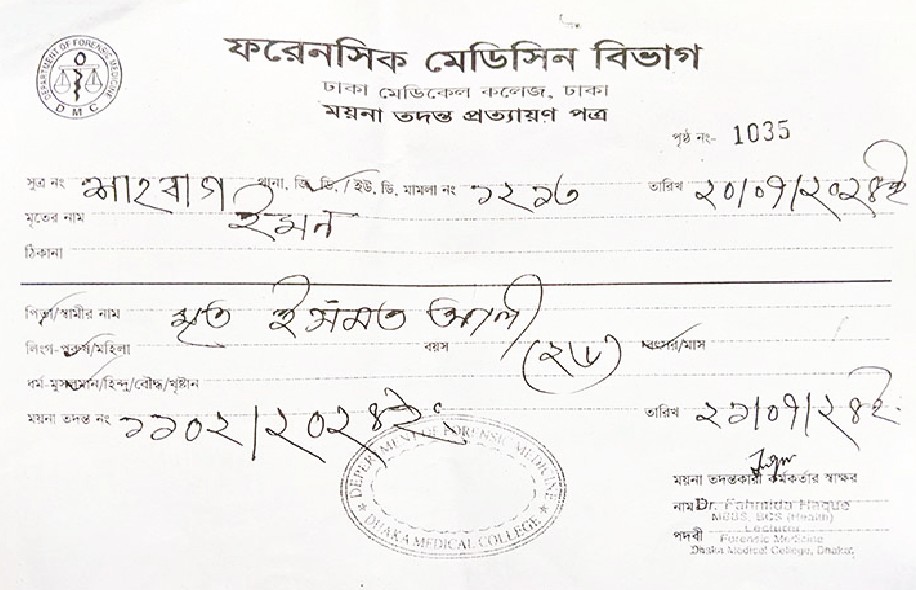 DEPARTMENT OF FORENSIC MEDICINE
DMC
ফরেনসিক মেডিসিন বিভাগ
ঢাকা মেডিকেল কলেজ, ঢাকা
ময়না তদন্ত প্রত্যায়ণ পত্র
পৃষ্ঠ নং- 1035
সূত্র নং শাহবাগ থানা, জি. ডি. / ইউ, ডি. মামলা নং ১২১৬ তারিখ ২০/০৭/২০২৪ইং
মৃতের নাম ইমন
ঠিকানা
পিতা/স্বামীর নাম মৃত ইসমত আলী
লিংগ-পুরুষ/মহিলা বয়স (২৬) বৎসর/মাস
ধর্ম-মুসলমান/হিন্দু/বৌদ্ধ/খৃষ্টান
ময়না তদন্ত নং ১১০২/২০২৪ইং তারিখ ২১/০৭/২৪ইং
DEPERTMENT OF FORENSIC MEDICINE
DHAKA MEDICAL COLLEGE
ময়না তদন্তকারী কর্মকর্তার স্বাক্ষর
নাম Dr. Fahmida Haque
MBBS, BCS (Health)
Lecturer
পদবী Forensic Medicine
Dhaka Medical College, Dhaka.